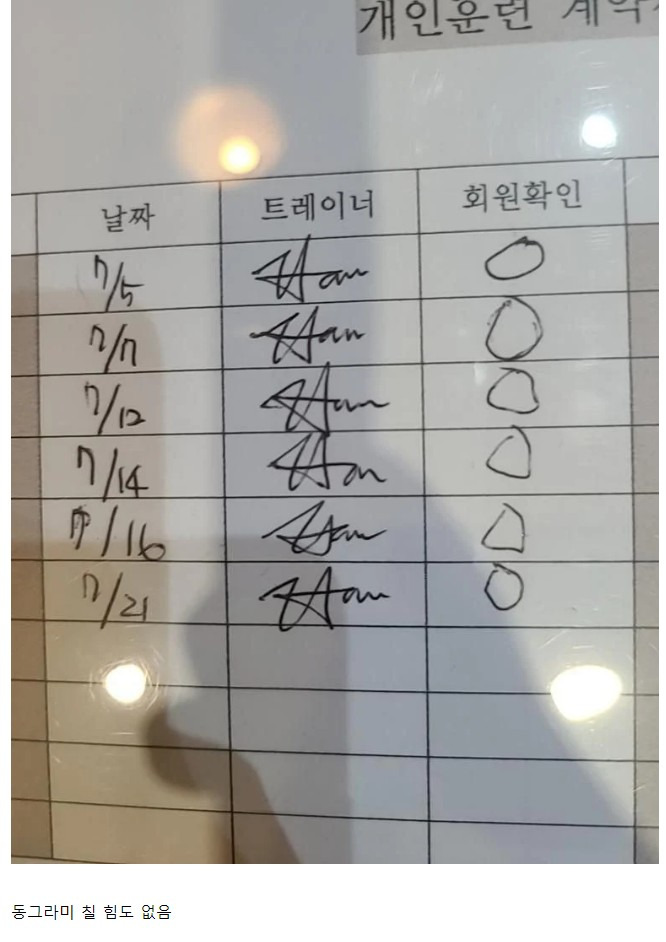 개인훈련 계약
날짜 트레이너 회원확인
7/5 Han O
7/7 Han O
7/12 Han O
7/14 Han O
7/16 Han O
7/21 Han O
동그라미 칠 힘도 없음